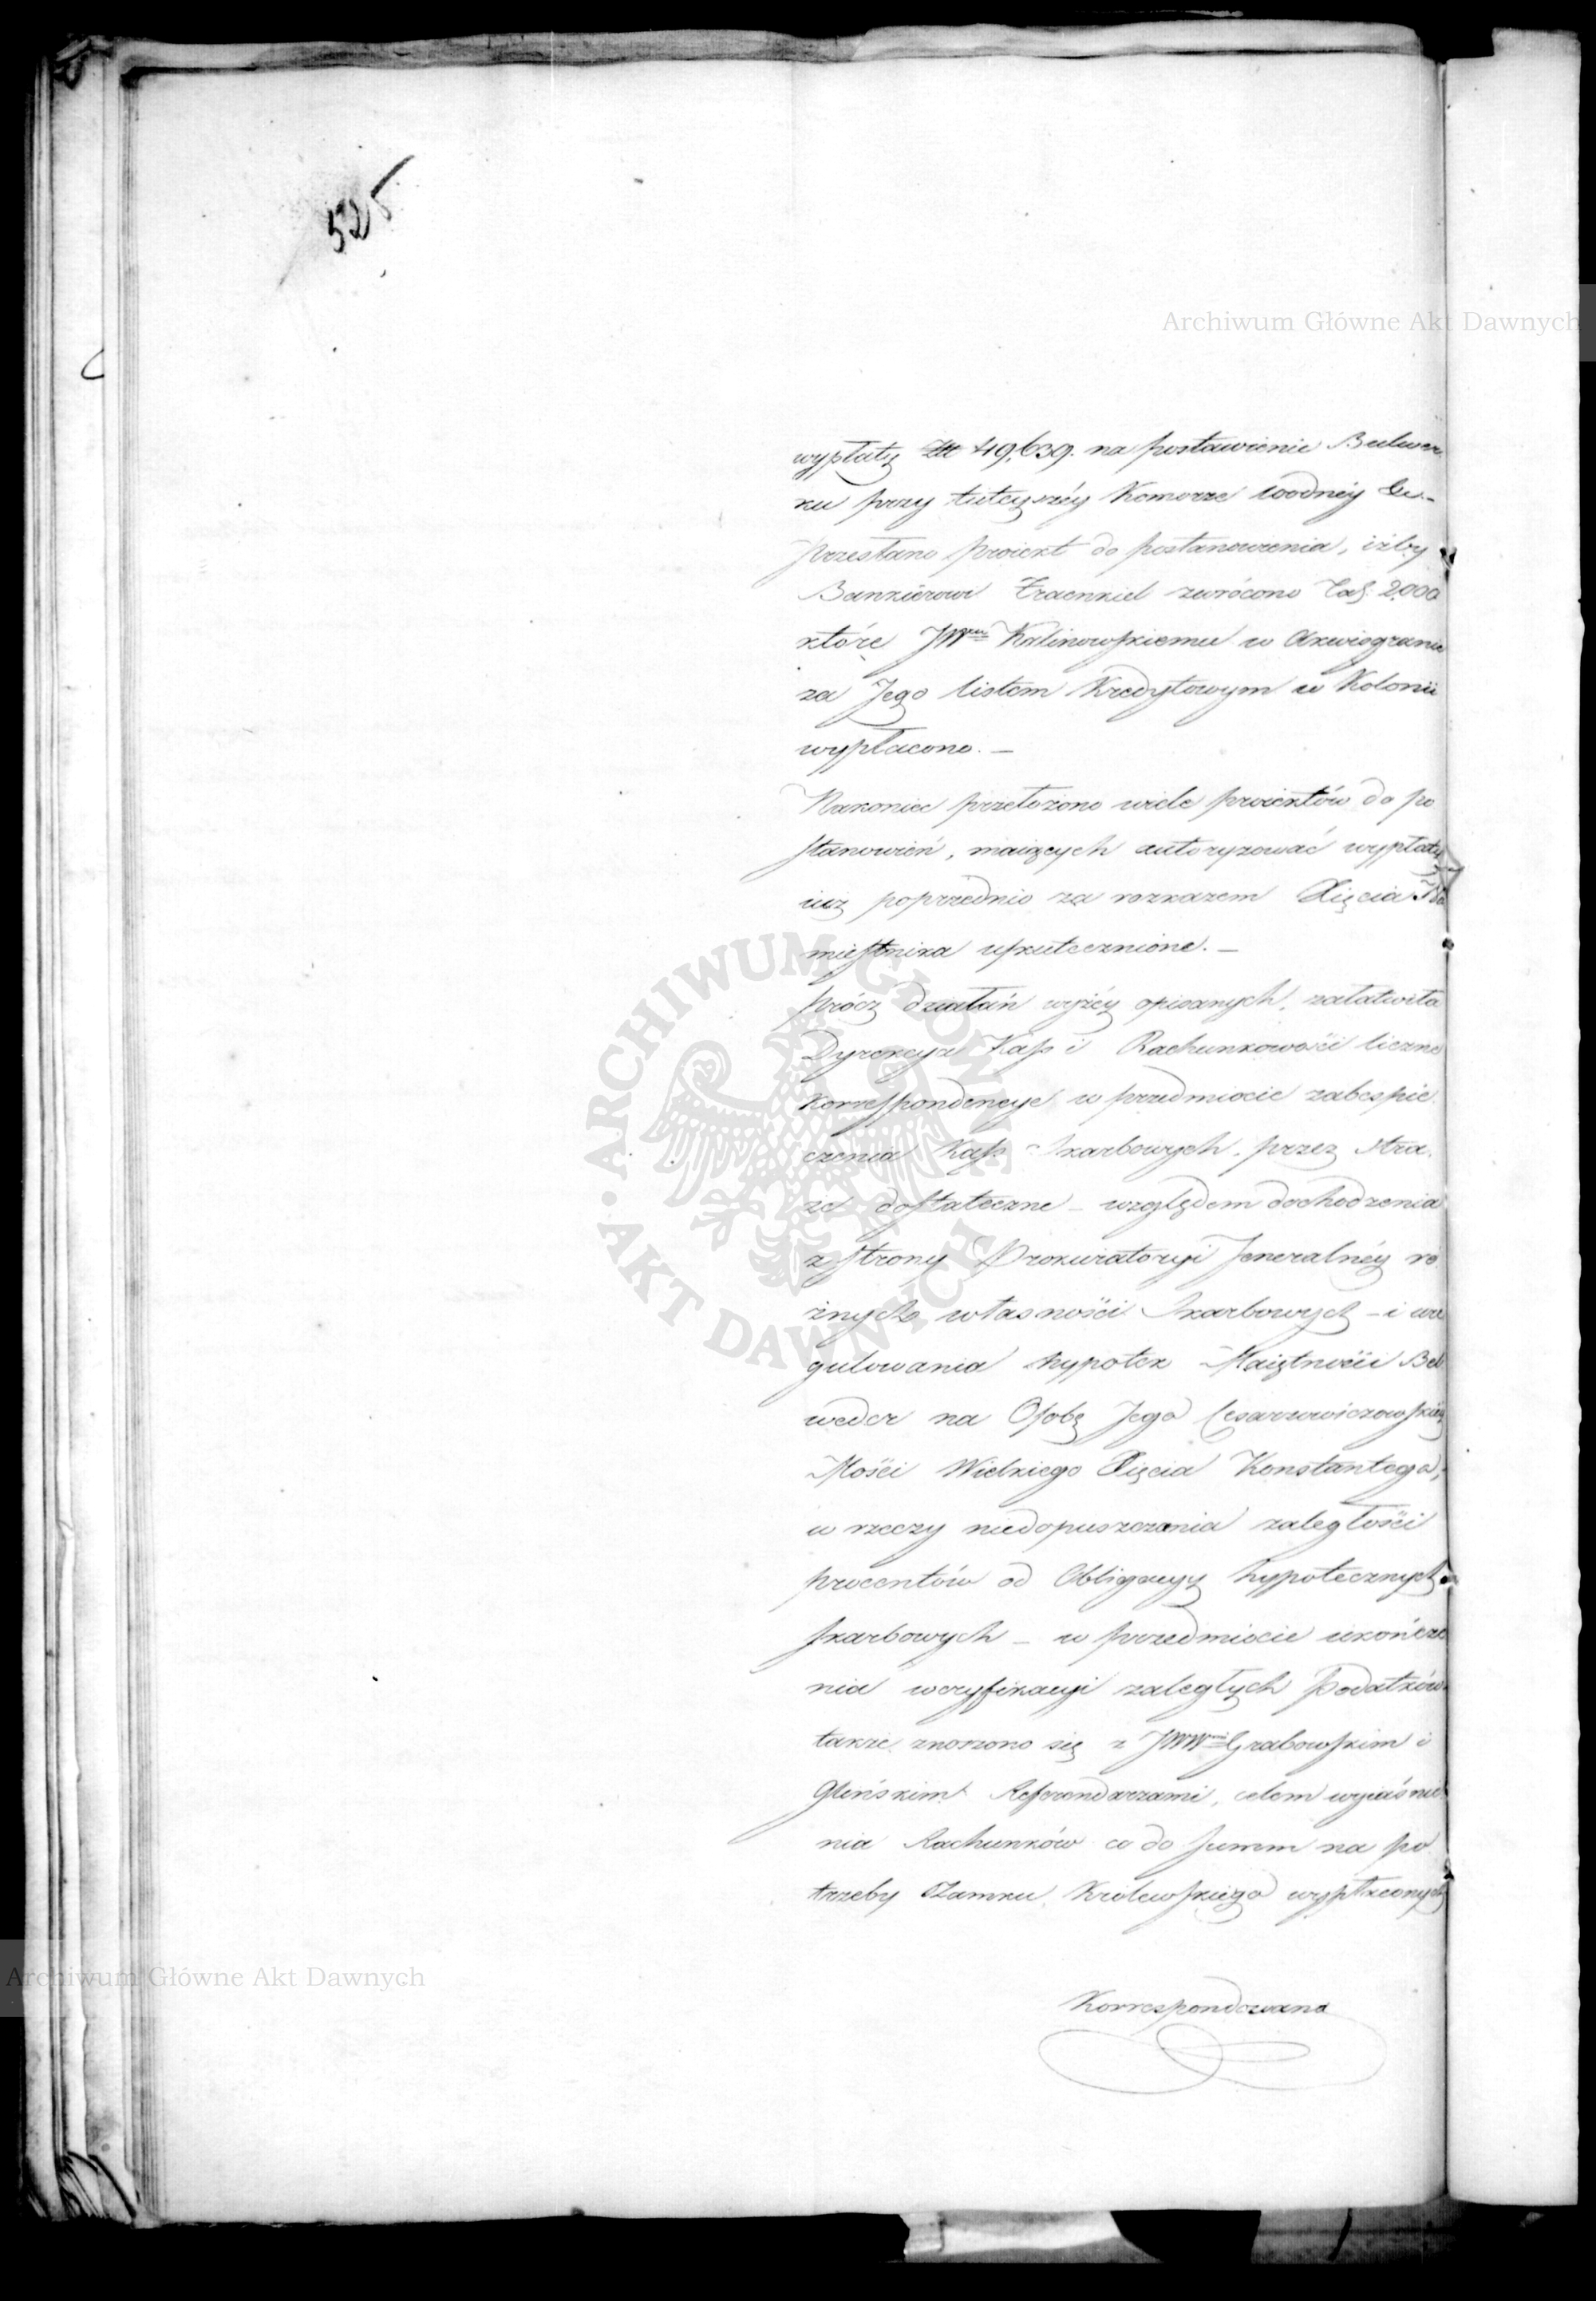 525
Archiwum Główne Akt Dawnych
wypłatę Złł 49,639. na postawienie Bulwer-
ku przy tuteyszéy Komorze wodnéy
Przesłano proiekt do postanowienia, iżby
Bankierowi Fraenkiel zwrócono Tal: 2,000
które JWmu Kalinowskiemu w Akwisgranie
za Jego listem Kredytowym w Kolonii
wypłacono. —
Nakoniec przełożono wiele proiektów do po
stanowień, maiących autoryzować wypłaty
iuż poprzednio za rozkazem Xięcia Na
miestnika uskutecznione. —
Prócz działań wyżéy opisanych, załatwiła
Dyrekcya Kass i Rachunkowości liczne
korrespondencye w przedmiocie zabespie
czenia Kass Skarbowych, przez stra
że dostateczne – względem dochodzenia
z strony Prokuratoryi Jeneralnéy ró
żnych własności Skarbowych – i ure
gulowania hypotek Maiętności Bel
weder na Osobę Jego Cesarzewiczowskiéy
Mości Wielkiego Xięcia Konstantego,
w rzeczy niedopuszczenia zaległości
procentów od Obligacyy hypotecznych
skarbowych – w przedmiocie ukończe
nia weryfikacyi zaległych Podatków
także znoszono się z JWWmi Grabowskim i
Glińskim Referendarzami, celem wyiaśnie
nia Rachunków co do summ na po
trzeby Zamku Królewskiego wypłaconych
Korrespondowano
ARCHIWUM GŁÓWNE AKT DAWNYCH
Archiwum Główne Akt Dawnych